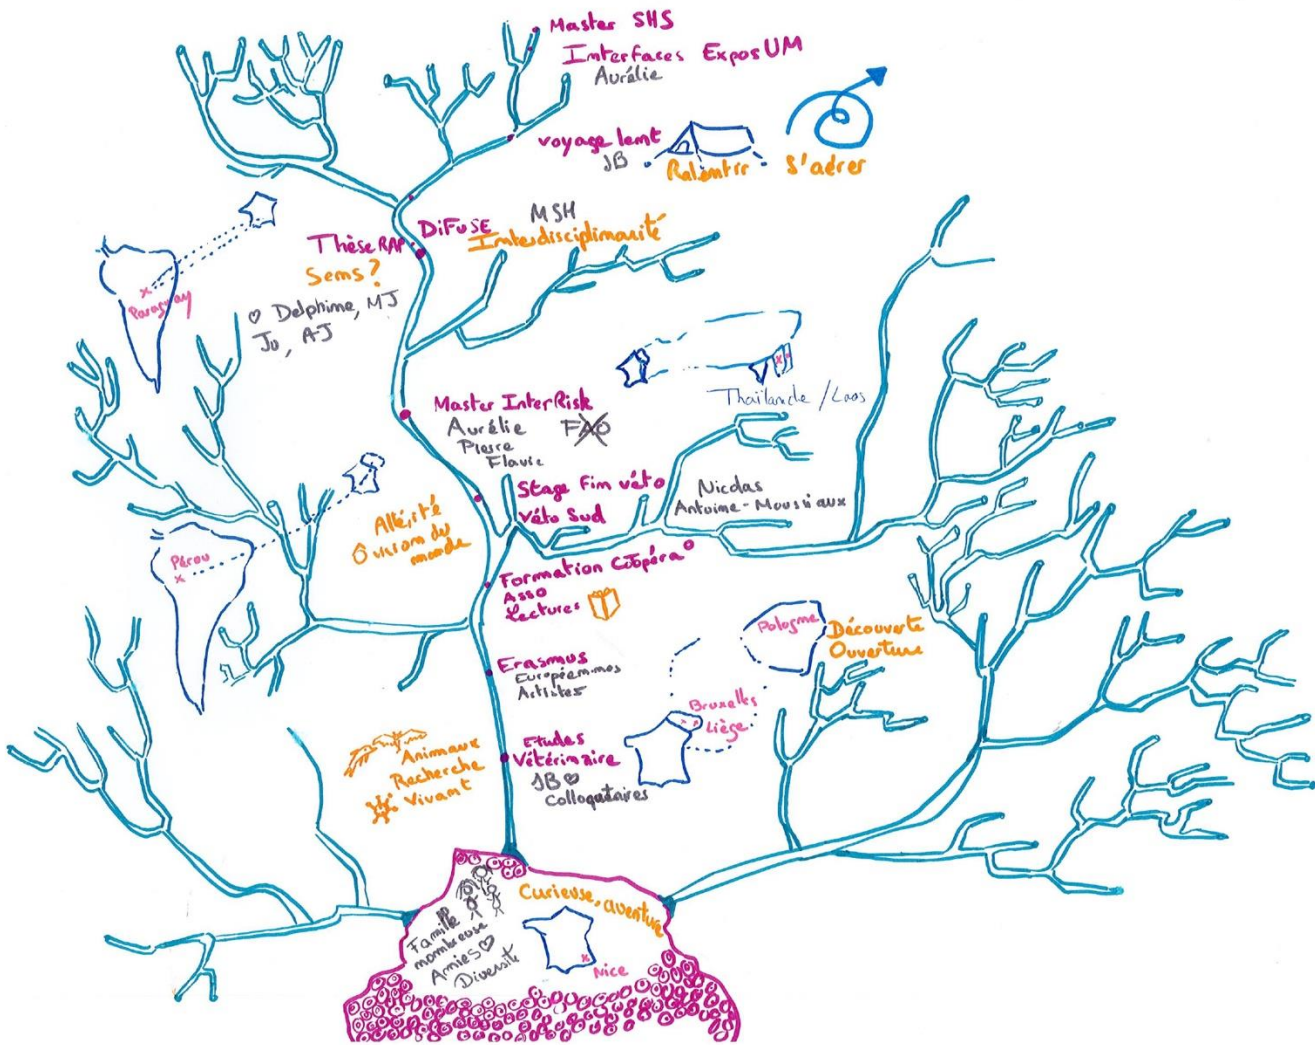 Master SHS
Interfaces ExposUM
Aurélie
voyage lent
JB
Ralentir
S'aérer
DiFuSE
MSH
Interdisciplinarité
Thèse RAP
Sens?
♡ Delphine, MJ
Ju, AJ
Paraguay
Thaïlande / Laos
Master InterRisk
Aurélie
FAO
Pierre
Flavie
Stage Fim véto
Véto Sud
Nicolas
Antoine-Moussiaux
Altérité
vision du
monde
Pérou
Formation Coopér°
Asso
Lectures
Erasmus
Européen·nes
Artistes
Pologne
Découverte
Ouverture
Bruxelles
Liège
Animaux
Recherche
Vivant
Etudes
Vétérinaire
JB ♡
Colloquataires
Curieuse, aventure
Famille
nombreuse
Amies ♡
Diversité
Nice